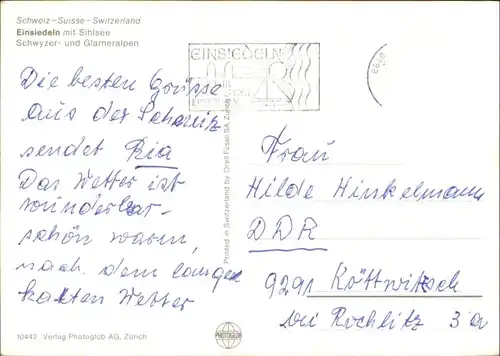 Schweiz-Suisse-Switzerland
Einsiedeln mit Sihlsee
Schwyzer- und Glarneralpen
EINSIEDELN
8840
Die besten Grüsse
aus der Schweiz
sendet Ria
Das Wetter ist
wunderbar-
schön warm,
nach dem langen
kalten Wetter
Printed in Switzerland by Orell Füssli SA, Zürich
Frau
Hilde Hinkelmann
DDR
9291 Köttwitzsch
bei Rochlitz 3a
10442 Verlag Photoglob AG, Zürich
PHOTOGLOB